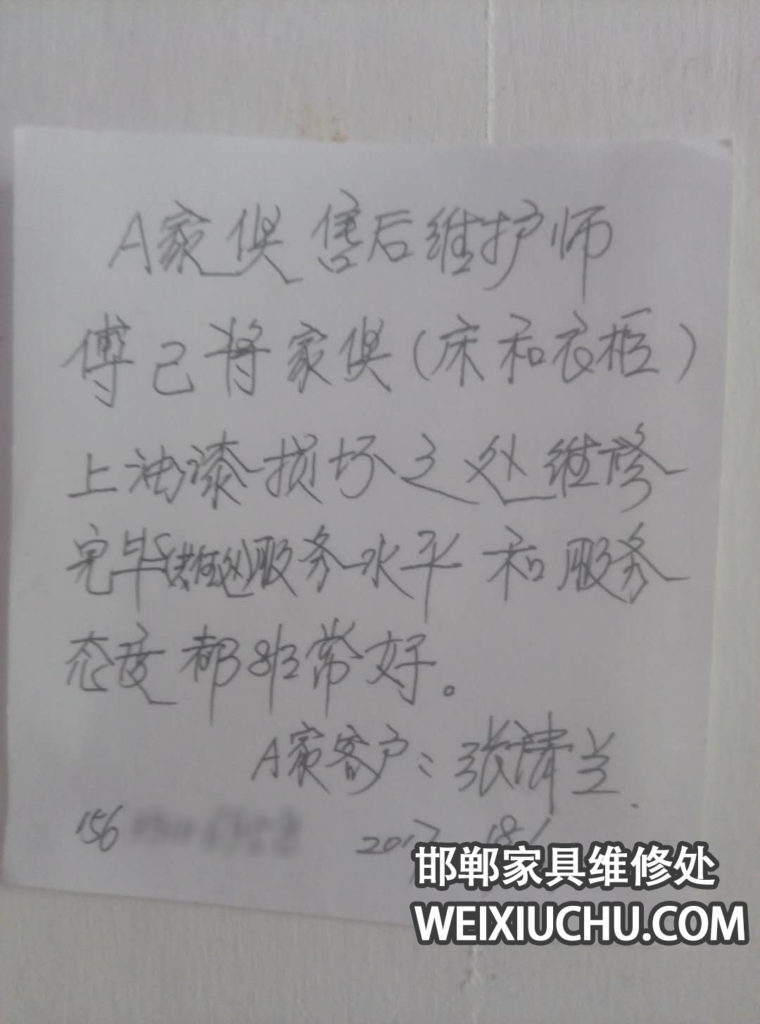 A家俱售后维护师
傅已将家俱(床和衣柜)
上油漆损坏之处维修
完毕 服务水平和服务
态度都非常好。
A家客户:张 兰
156
2017
邯郸家具维修处
WEIXIUCHU.COM